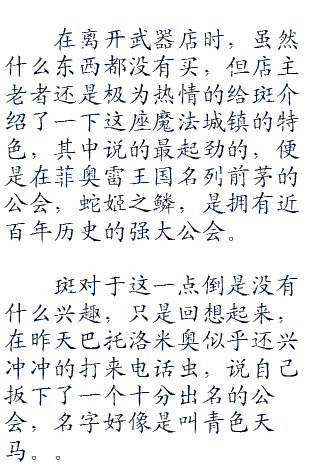 在离开武器店时，虽然
什么东西都没有买，但店主
老者还是极为热情的给斑介
绍了一下这座魔法城镇的特
色，其中说的最起劲的，便
是在菲奥雷王国名列前茅的
公会，蛇姬之鳞，是拥有近
百年历史的强大公会。
斑对于这一点倒是没有
什么兴趣，只是回想起来，
在昨天巴托洛米奥似乎还兴
冲冲的打来电话虫，说自己
扳下了一个十分出名的公
会，名字好像是叫青色天
马。。